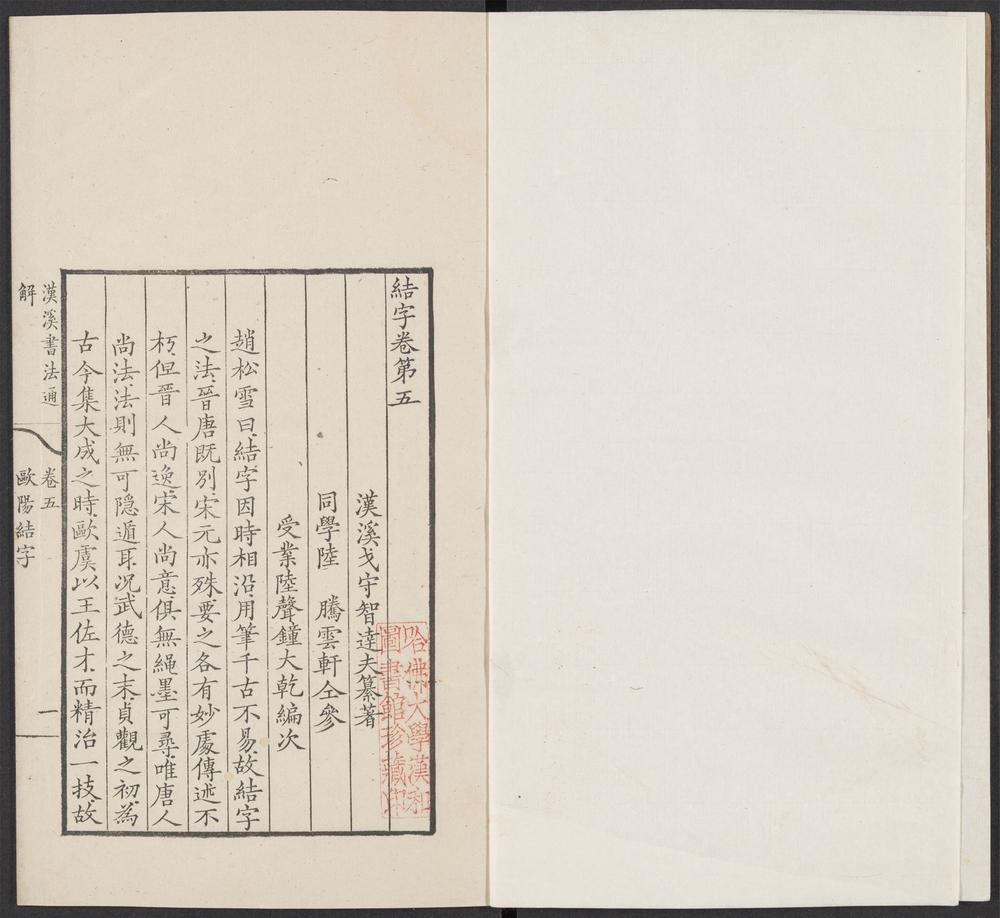 結字卷第五
漢溪戈守智達夫纂著
同學陸　騰雲軒仝參
受業陸聲鐘大乾編次
趙松雪曰結字因時相沿用筆千古不易故結字
之法晉唐既別宋元亦殊要之各有妙處傳述不
朽但晉人尚逸宋人尚意俱無繩墨可尋唯唐人
尚法法則無可隱遁耳况武德之末貞觀之初為
古今集大成之時歐虞以王佐才而精治一技故
漢溪書法通
解
卷五
歐陽結字
一
哈佛大學漢和
圖書館珍藏印